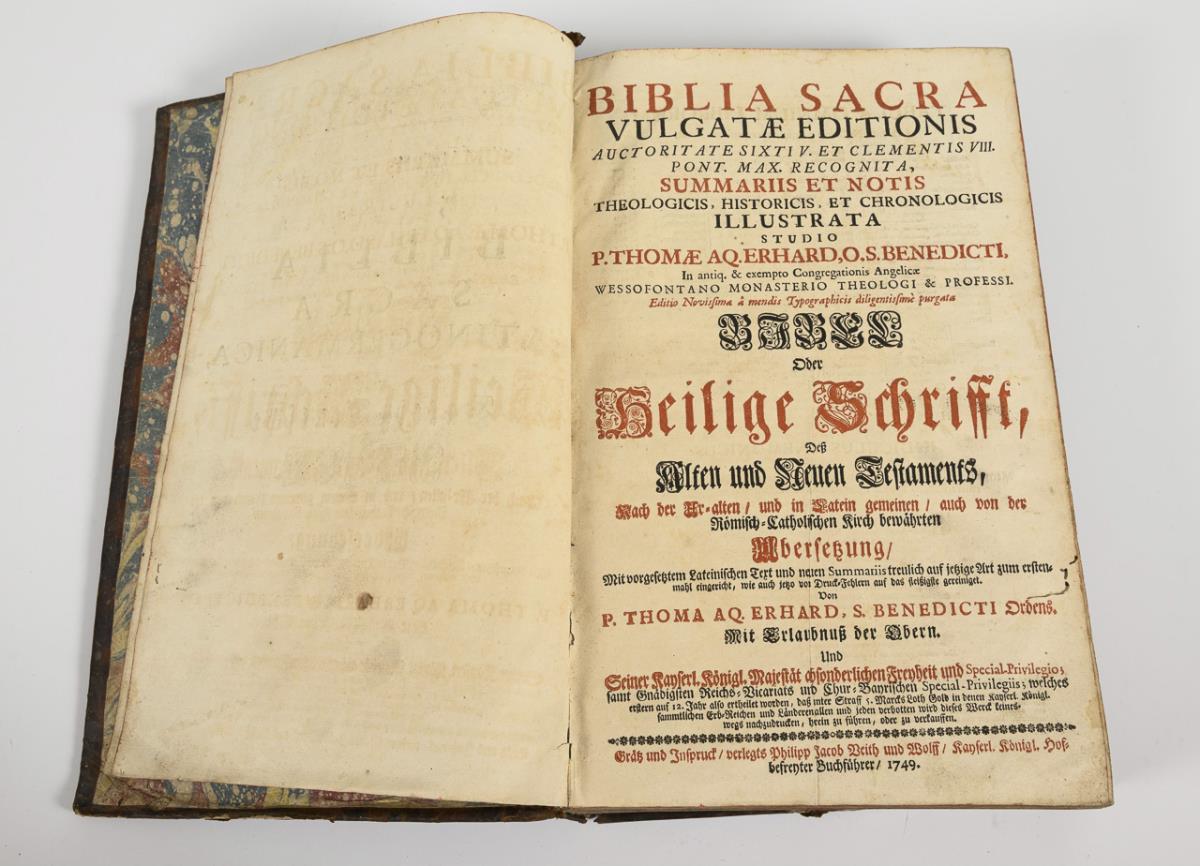 BIBLIA SACRA
VULGATÆ EDITIONIS
AUCTORITATE SIXTI V. ET CLEMENTIS VIII.
PONT. MAX. RECOGNITA,
SUMMARIIS ET NOTIS
THEOLOGICIS, HISTORICIS, ET CHRONOLOGICIS
ILLUSTRATA
STUDIO
P. THOMÆ AQ. ERHARD, O. S. BENEDICTI,
In antiq. & exempto Congregationis Angelicæ
WESSOFONTANO MONASTERIO THEOLOGI & PROFESSI.
Editio Novissima à mendis Typographicis diligentissimè purgata
BIBEL
Oder
Heilige Schrifft,
Deß
Alten und Neuen Testaments,
Nach der Ur-alten / und in Latein gemeinen / auch von der
Römisch-Catholischen Kirch bewährten
Ubersetzung /
Mit vorgesetztem Lateinischen Text und neuen Summariis treulich auf jetzige Art zum ersten-
mahl eingericht, wie auch jetzo vor Druck-Fehlern auf das fleißigste gereiniget.
Von
P. THOMA AQ. ERHARD, S. BENEDICTI Ordens.
Mit Erlaubnuß der Obern.
Und
Seiner Kayserl. Königl. Majestät absonderlichen Freyheit und Special-Privilegio;
samt Gnädigsten Reichs-Vicariats und Chur-Bayrischen Special-Privilegiis; welches
erstern auf 12. Jahr also ertheilet worden, daß unter Straff 5. Marcks Loth Gold in denen Kayserl. Königl.
sammtlichen Erb-Reichen und Länderen allen und jeden verbotten wird dieses Werck keines-
wegs nachzudrucken, herein zu führen, oder zu verkauffen.
Grätz und Inspruck / verlegts Philipp Jacob Veith und Wolff / Kayserl. Königl. Hof-
befreyter Buchführer / 1749.